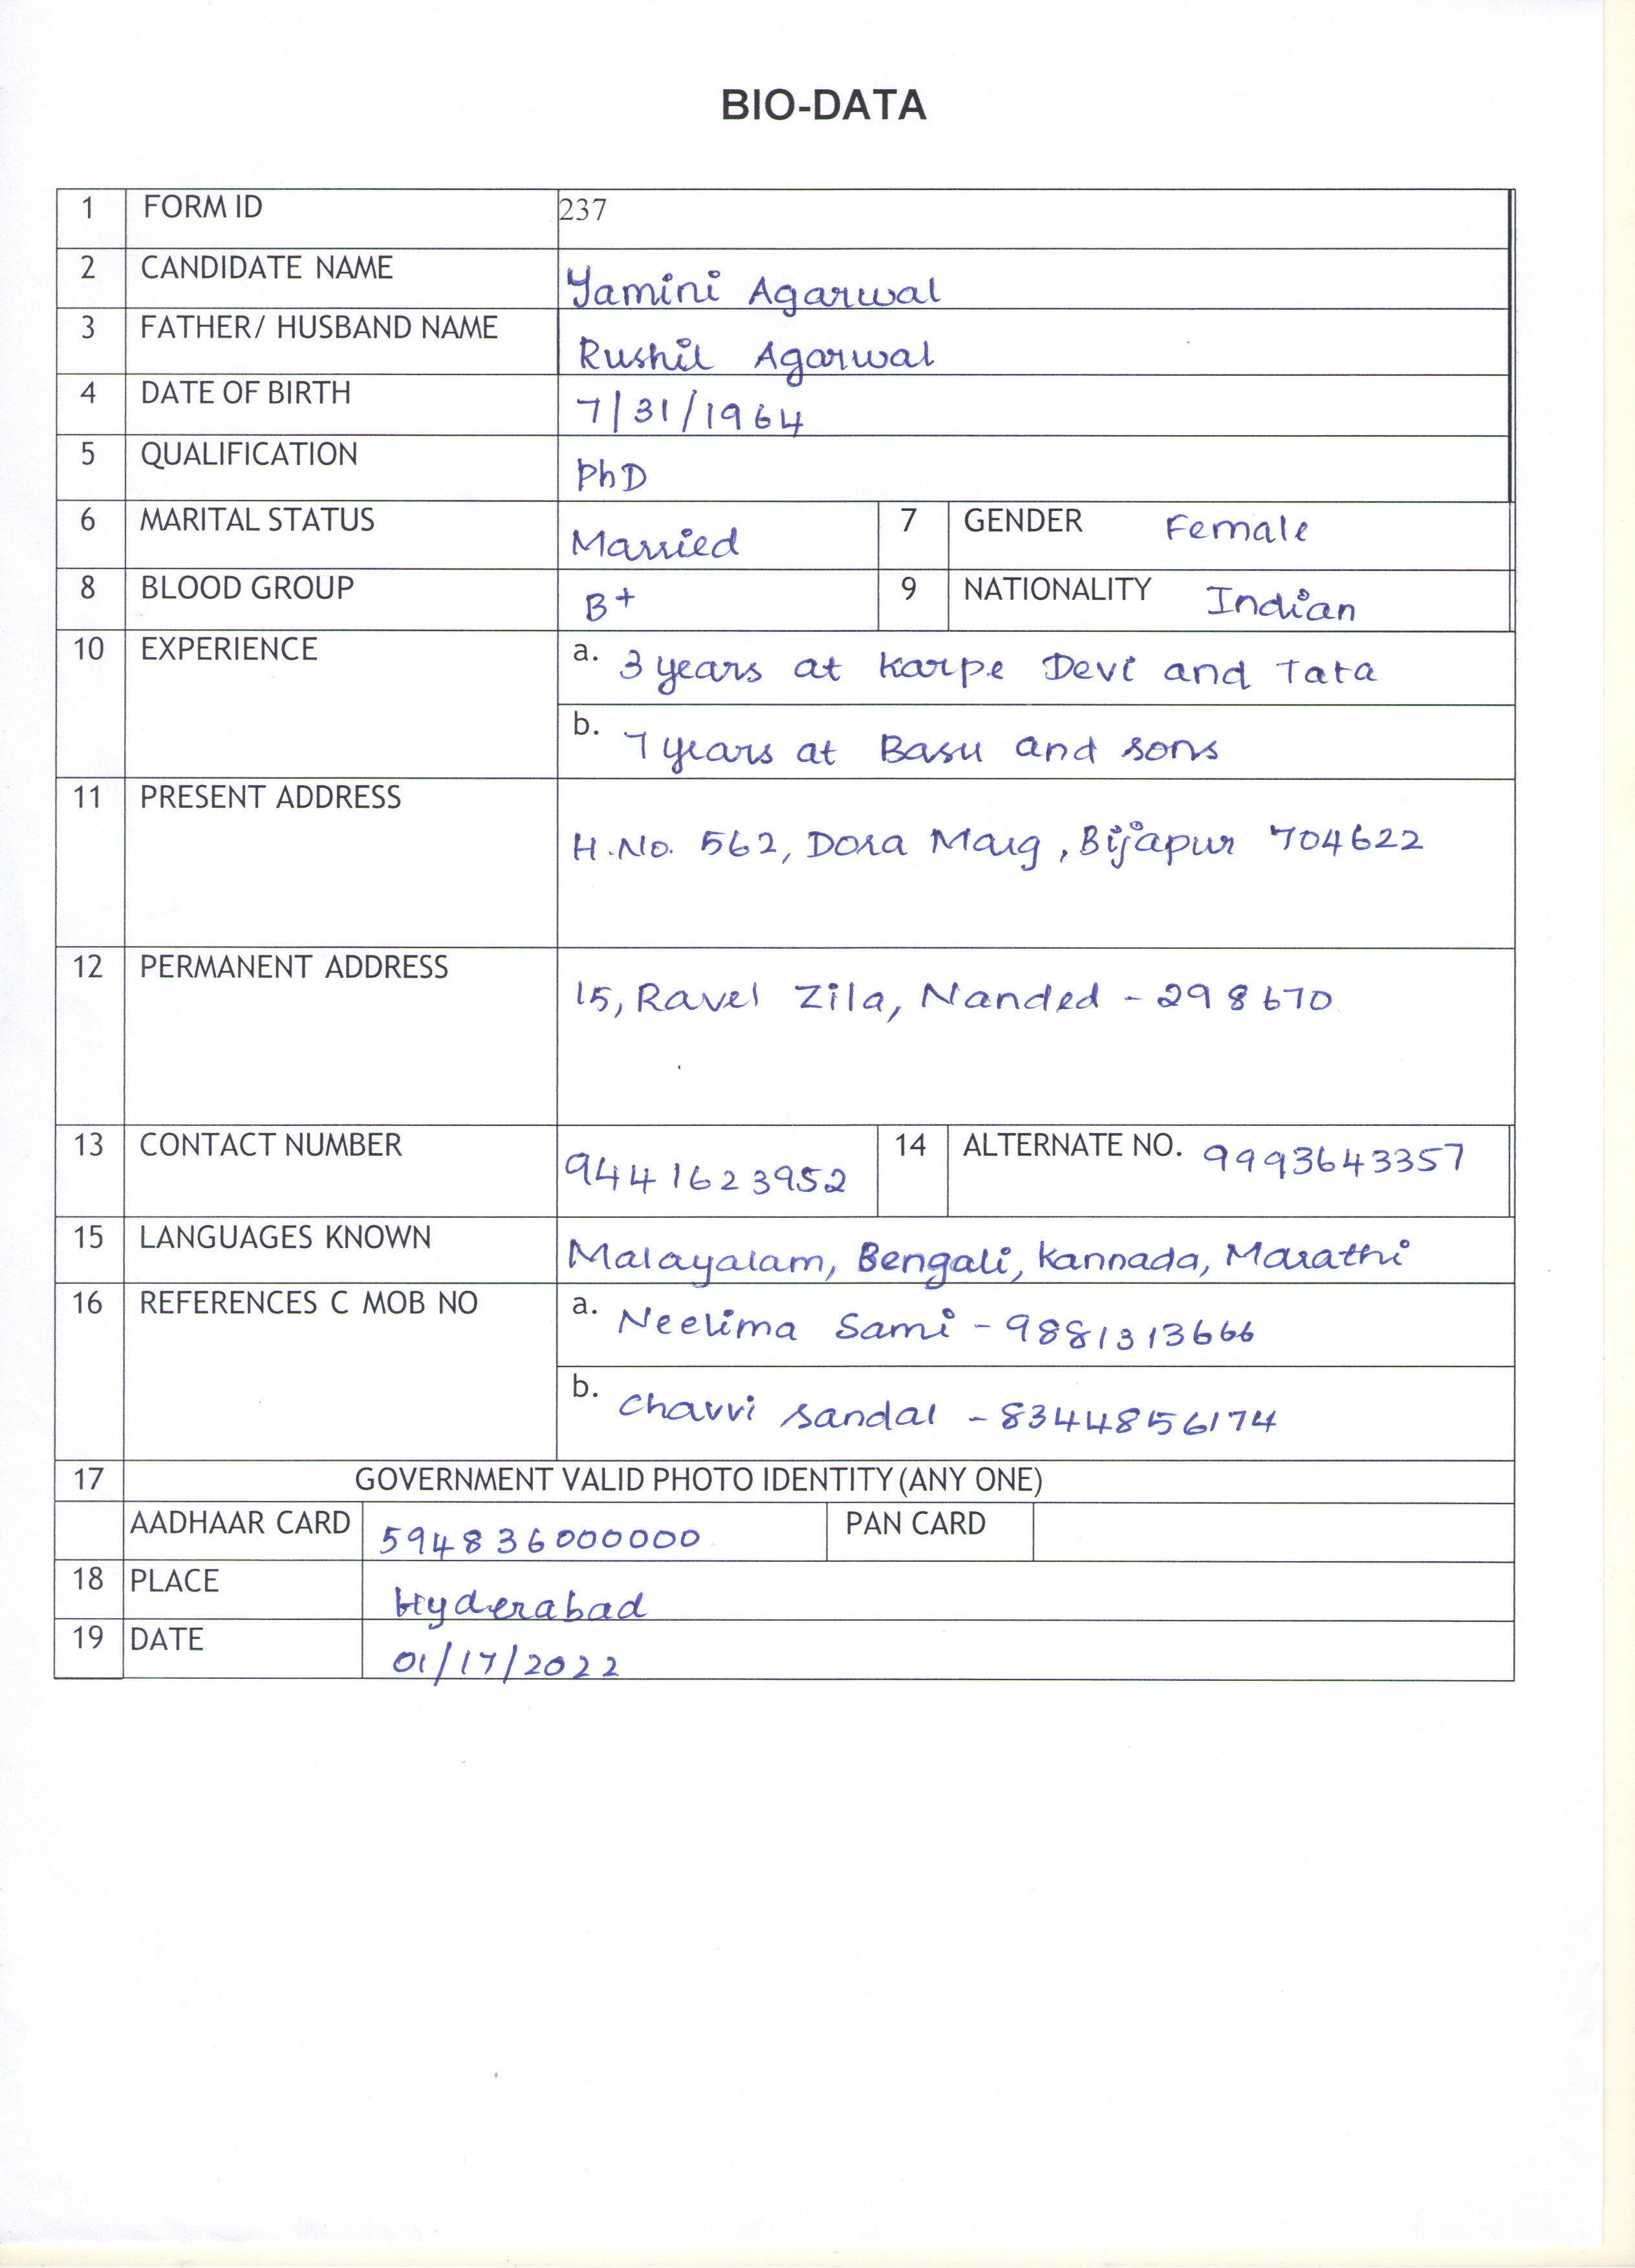 BIO-DATA
1 FORM ID 237
2 CANDIDATE NAME Yamini Agarwal
3 FATHER/ HUSBAND NAME Rushil Agarwal
4 DATE OF BIRTH 7/31/1964
5 QUALIFICATION PhD
6 MARITAL STATUS Married 7 GENDER Female
8 BLOOD GROUP B+ 9 NATIONALITY Indian
10 EXPERIENCE a. 3 years at Karpe Devi and Tata
b. 7 years at Basu and sons
11 PRESENT ADDRESS
H.No. 562, Dora Marg, Bijapur 704622
12 PERMANENT ADDRESS
15, Ravel Zila, Nanded - 298670
13 CONTACT NUMBER 9441623952 14 ALTERNATE NO. 9993643357
15 LANGUAGES KNOWN Malayalam, Bengali, Kannada, Marathi
16 REFERENCES C MOB NO a. Neelima Sami - 9881313666
b. Chavvi Sandal - 8344856174
17 GOVERNMENT VALID PHOTO IDENTITY (ANY ONE)
AADHAAR CARD 594836000000 PAN CARD
18 PLACE Hyderabad
19 DATE 01/17/2022